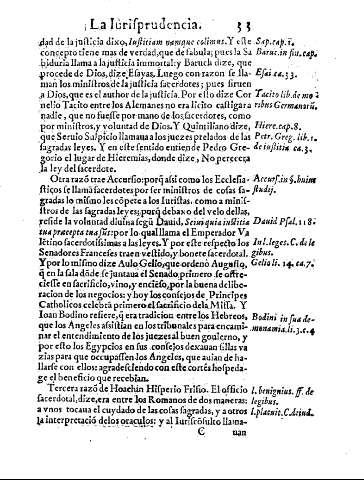 La Iurisprudencia. 33
dad de la justicia dixo, Iustitiam namque colimus. Y este
concepto tiene mas de verdad, que de fabula; pues la Sa
biduria llama a la justicia immortal: y Baruch dize, que
procede de Dios, dize Esayas. Luego con razon se lla-
man los ministros de la justicia sacerdotes; pues siruen
a Dios, que es el author de la justicia. Por ello dize Cor
nelio Tacito entre los Alemanes no era licito castigar a
nadie, que no fuesse por mano de los sacerdotes, como
por ministros, y voluntad de Dios. Y Quintiliano dize,
que Seruio Sulpicio llamaua a los juezes prelados de las
sagradas leyes. Y en este sentido entiende Pedro Gre-
gorio el lugar de Hieremias, donde dize, No perecera
la ley del sacerdote.
Otra razõ trae Accursio: porq̃ assi como los Ecclesia-
sticos se llamã sacerdotes por ser ministros de cosas sa-
gradas lo mismo les cõpete a los Iuristas, como a mini-
stros de las sagradas leyes; porq̃ debaxo del velo dellas,
reside la voluntad diuina segũ Dauid, Seruiquia iustitia
tua præcepta tua sũt: por lo qual llama el Emperador Va
lẽtino sacerdotissimas a las leyes. Y por este respeto los
Senadores Franceses traen vestido, y bonete sacerdotal.
Y por lo mismo dize Aulo Gelio, que ordenò Augusto,
q̃ en la sala dõde se juntaua el Senado, primero se offre-
ciesse en sacrificio, vino, y enciẽso, por la buena delibe-
racion de los negocios: y hoy los consejos de Principes
Catholicos celebrã primero el sacrificio de la Missa. Y
Ioan Bodino refiere, q̃ era tradicion entre los Hebreos,
que los Angeles assistian en los tribunales para encami-
nar el entendimiento de los juezes al buen gouierno, y
por esto los Egypcios en sus consejos dexauan sillas va
zias para que occupassen los Angeles, que auian de ha-
llarse con ellos: agradesciendo con este cortès hospe-
dage el beneficio que recebian.
Tercera razõ de Hoachin Hisperio Frisio. El officio
sacerdotal, dize, era entre los Romanos de dos maneras:
a vnos tocaua el cuydado de las cosas sagradas, y a otros
la interpretaciõ de los oraculos: y al Iurisconsulto llama-
C uan
Sap. cap. 1.
Baruc. in fin. cap.
Esai. ca. 33.
Tacito lib. de mo
ribus Germanorũ.
Hiere. cap. 8.
Petr. Greg. lib. 1.
de iustitia ca. 3.
Accurs. in §. huius
studij.
Dauid Psal. 118.
In l. leges C. de le
gibus.
Gelio li. 14. ca. 7.
Bodini in sua de-
monamia. li. 3. c. 4
l. benignius. ff. de
legibus.
l. placuit. C. de iud.